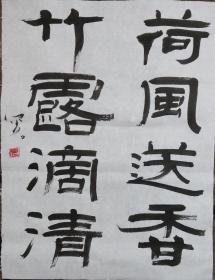 荷風送香
竹露滴清